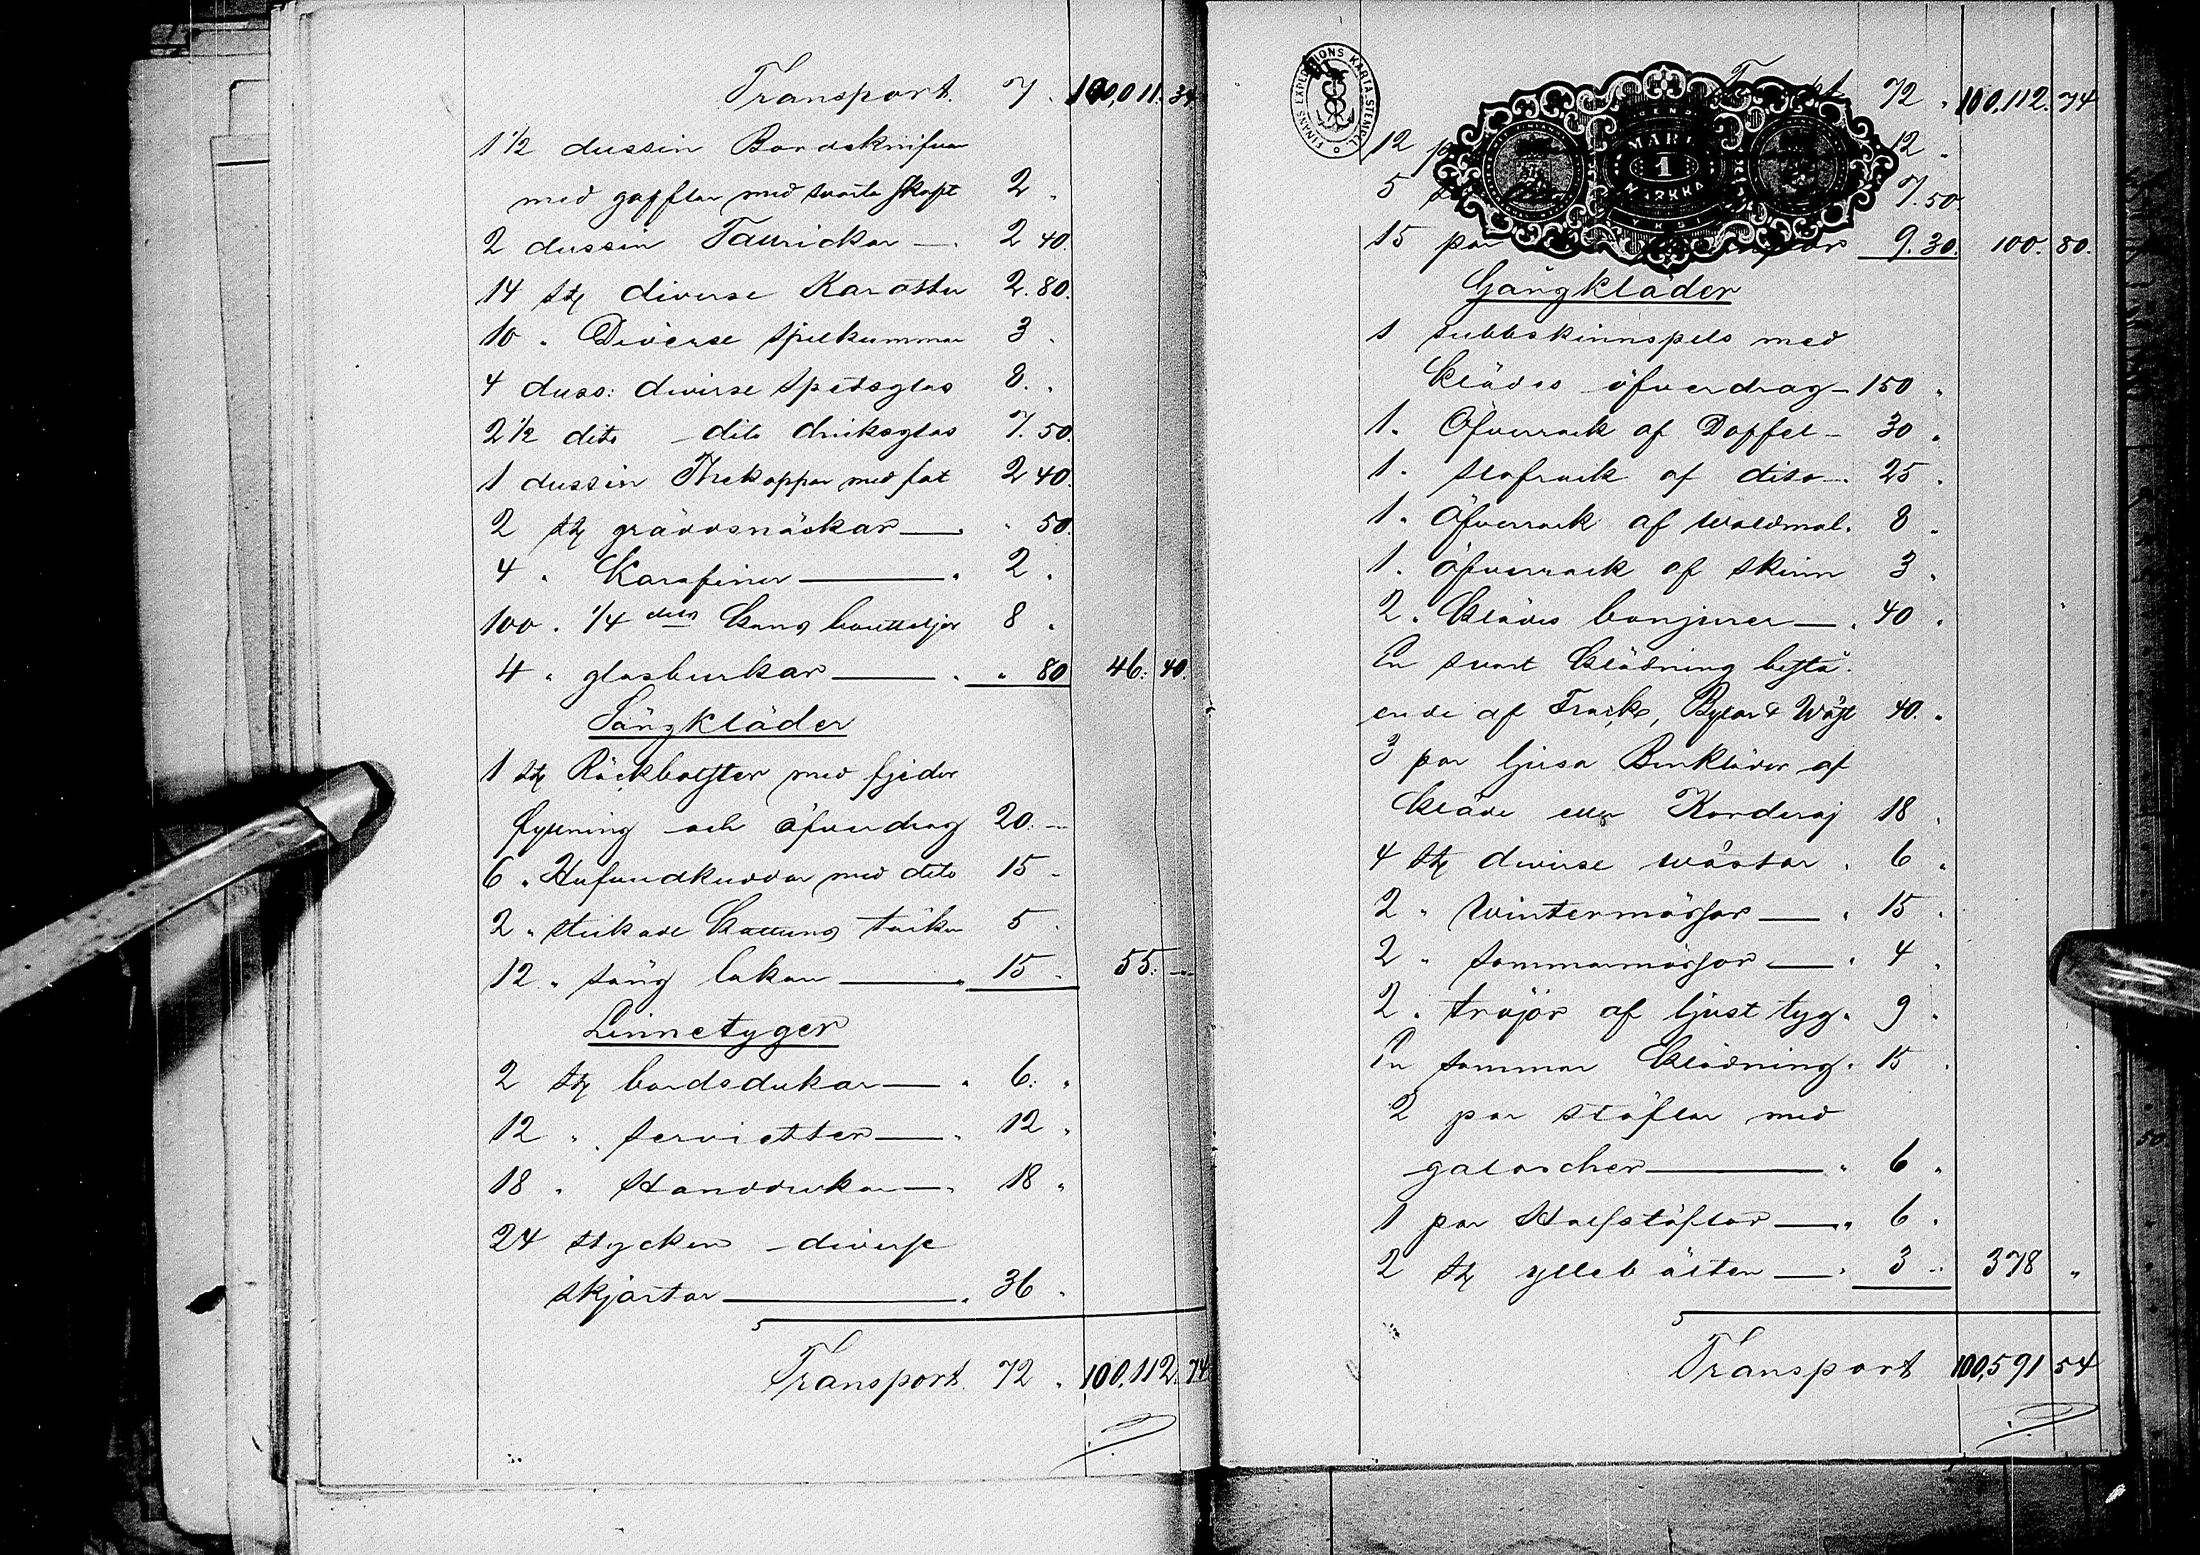 Transport. 7 " 100,011. 34
1 1/2 dussin Bordsknifvar
med gafflar med svarta skaft 2 "
2 dussin Taurickar — " 2 40.
14 st diverse Karotter 2. 80.
10 " Diverse Spilkummar 3 "
4 duss: diverse Spetsglas 8. "
2 1/2 dito dito dricksglas 7. 50.
1 dussin Thekoppar med fat 2 40.
2 st gräddsnäckar — " 50.
4 " Karafiner — " 2 "
100 " 1/4 dels Kans bouteljer 8 "
4 " glasburkar — " " 80 46: 40.
Sängkläder
1 st Räckbolster med fjeder
fyllning och öfverdrag 20. —
6 " Hufvudkuddar med dito 15 "
2 " stickade Kattuns täcken 5 "
12 " säng lakan — " 15 " 55. —
Linnetyger
2 st bordsdukar — " 6. "
12 " servietter — " 12 "
18 " Handdukar — " 18 "
24 stycken diverse
skjortor — " 36 "
Transport. 72 " 100,112. 74
FINANS EXPEDITIONS KARTA STEMPEL
MARK
1
MARKKA
72 " 100,112. 74
12 12 "
5 7. 50.
15 par 9. 30. 100. 80.
Gångkläder
1 subbskinnspels med
klädes öfverdrag — 150 "
1. Öfverrock af Doffel — 30 "
1. Slafrock af dito — 25 "
1. Öfverrock af Waldmal. 8 "
1. Öfverrock af skinn 3 "
2. Klädes bonjurer — " 40 "
En svart Klädning bestå-
ende af Frack, Byxor & Wäst 40. "
3 par ljusa Benkläder af
Kläde eller Korderoj 18 "
4 st diverse wästar " 6 "
2 " Wintermössor — " 15 "
2 " Sommarmössor — " 4 "
2 " tröjor af ljust tyg " 9 "
En sommar Klädning " 15 "
2 par stöflar med
galoscher — " 6 "
1 par Halfstöflar — " 6 "
2 st yllebälten — " 3 " 378 "
Transport 100,591 54
50